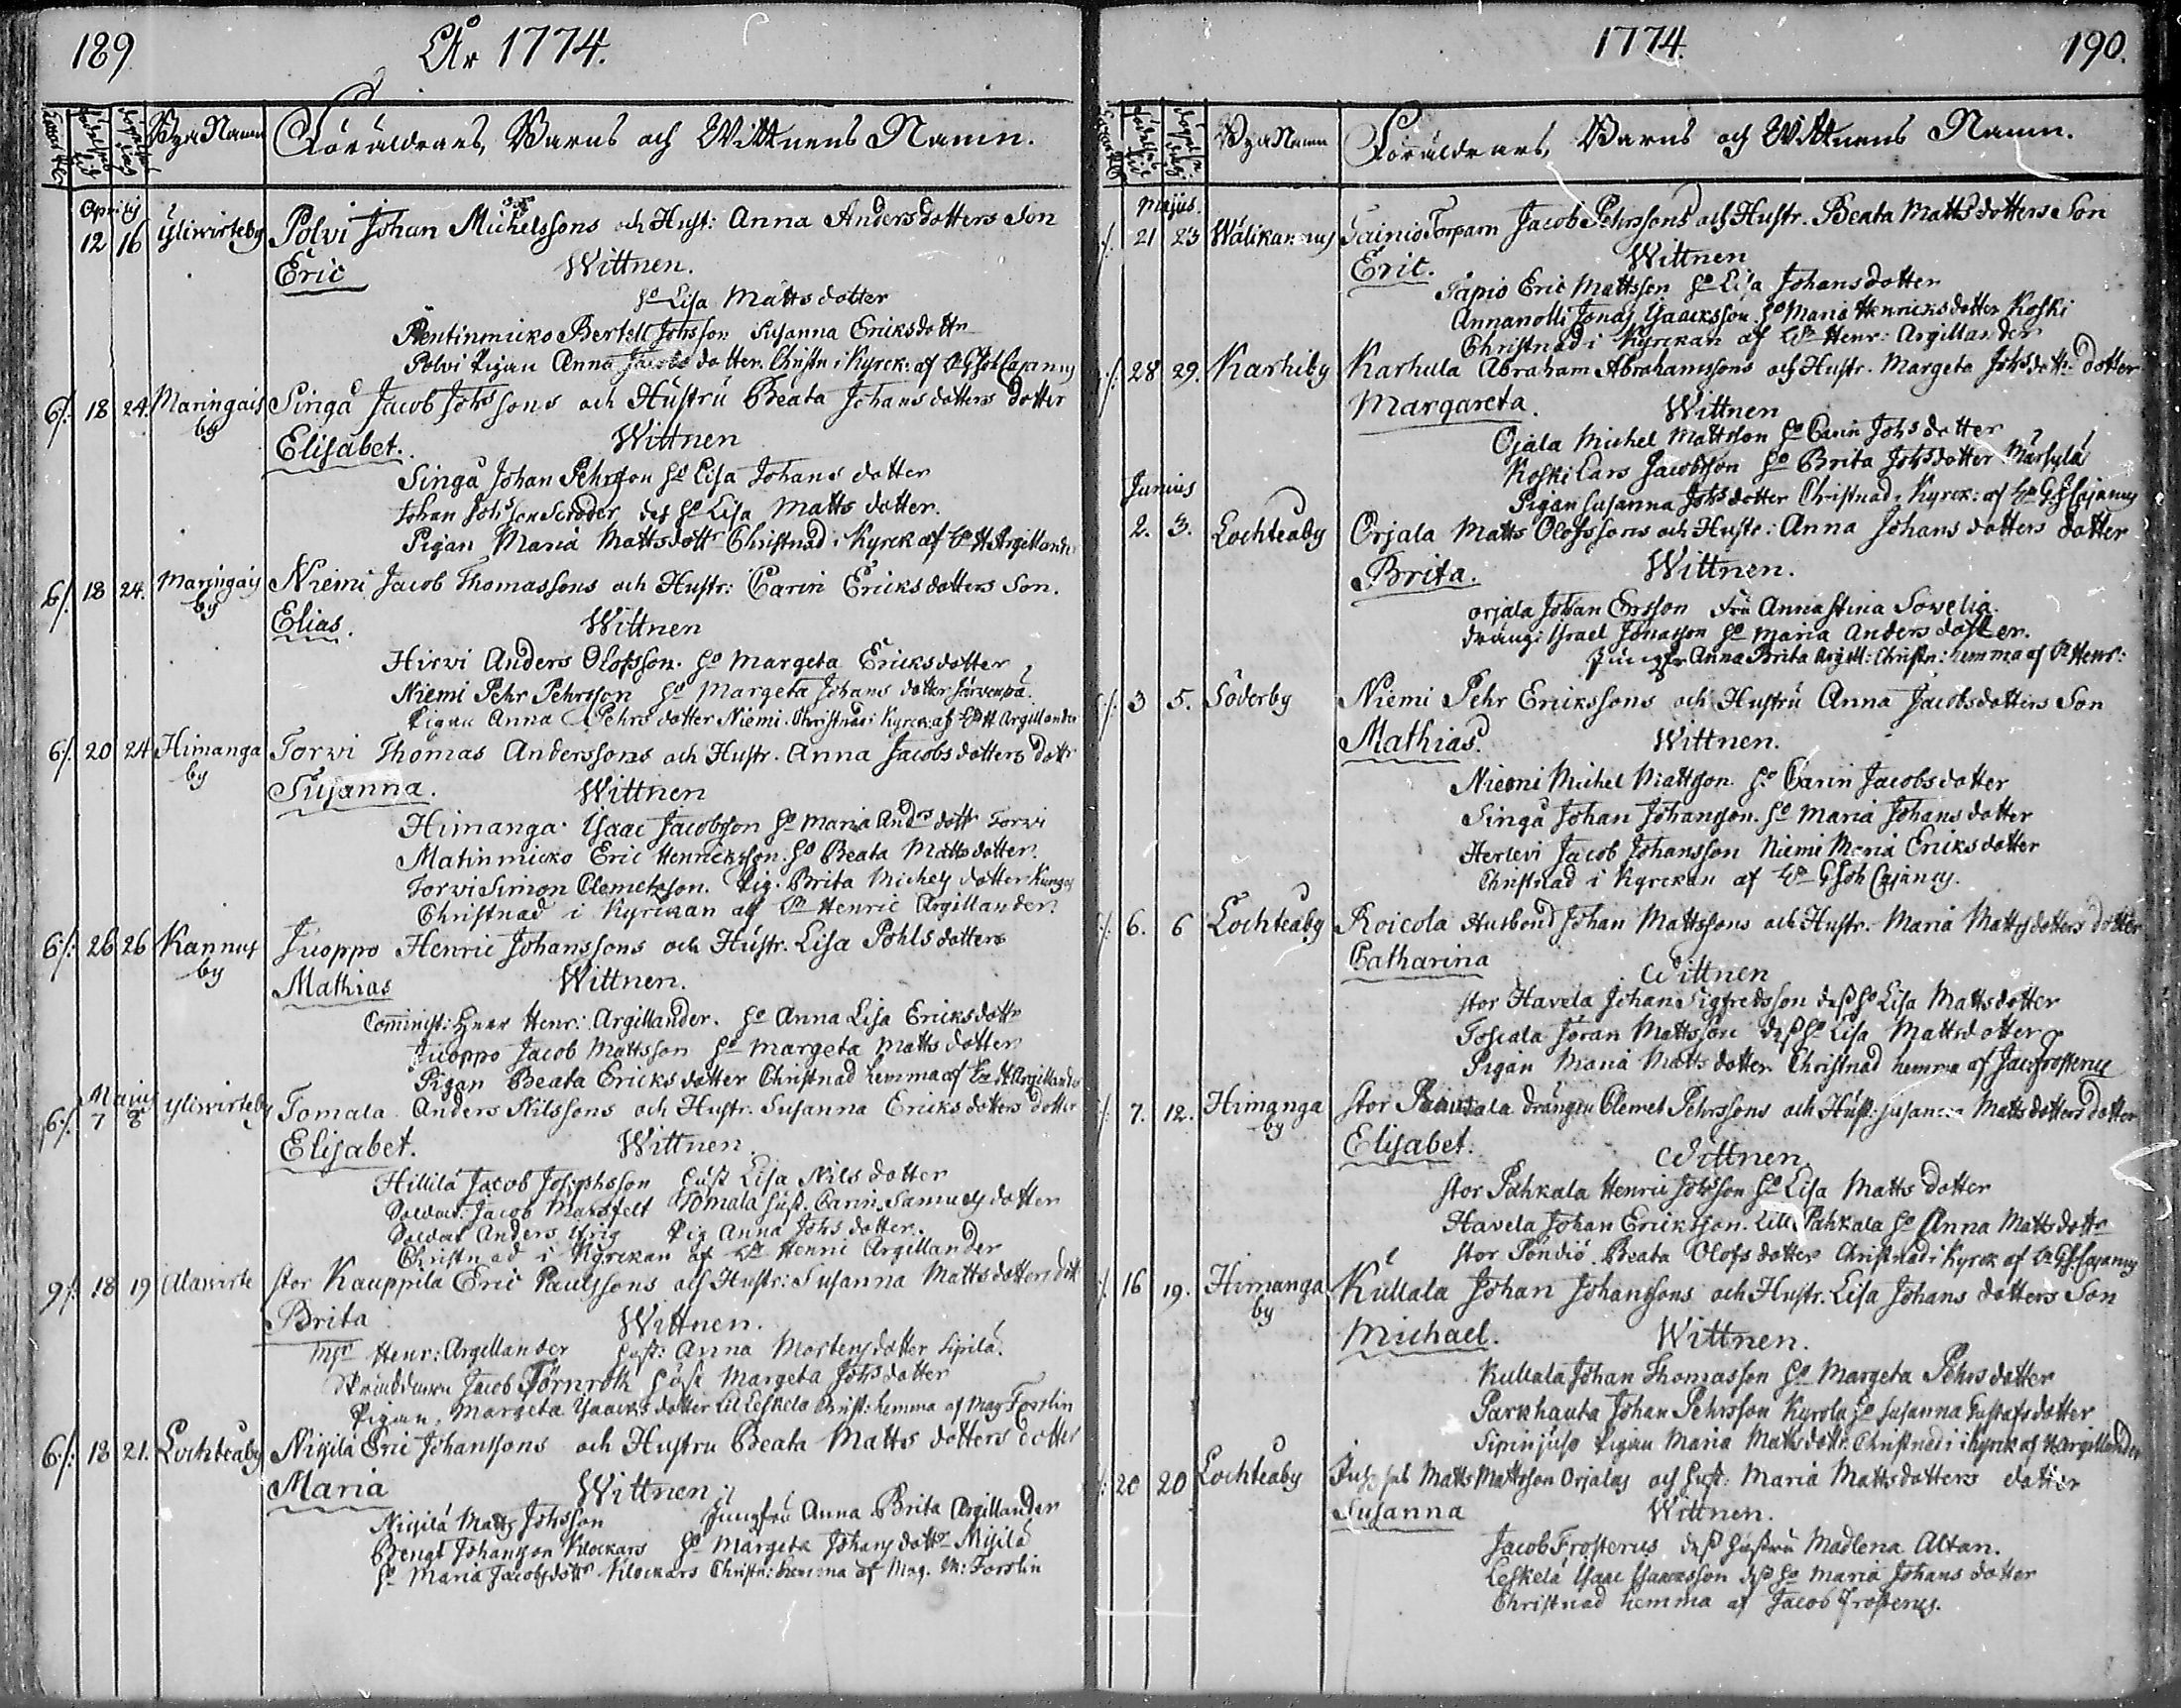 189 År 1774.
Byx Namn Föräldrars, Barns och Wittnens Namn.
Aprilis
12 16 Yliwirteby Polvi Johan Michelssons och Hust: Anna Andersdotters Son
Eric Wittnen.
Ho Lisa Mattsdotter
Pentinmicko Bertell Johsson Susanna Ericksdottr
Polvi Pigan Anna Jacobs dotter. Christn i Kyrck: af
6/. 18 24. Maringais by Singå Jacob Johssons och Hustru Beata Johansdotters dotter
Elisabet. Wittnen
Singå Johan Pehrsson Ho Lisa Johans dotter
Johan Johsson Scroder des Ho Lisa Matts dotter.
Pigan Maria Mattsdottr Christnad i Kyrck af H. Argillander
6/. 18 24. Maringais by Niemi Jacob Thomassons och Hustr: Carin Ericksdotters Son.
Elias. Wittnen
Hirvi Anders Olofsson. Ho Margeta Ericksdotter
Niemi Pehr Pehrsson Ho Margeta Johans dotter Järvenpä.
Pigan Anna Pehrs dotter Niemi. Christnad i Kyrck: af H. Argillander
6/. 20 24 Himanga by Torvi Thomas Anderssons och Hustr. Anna Jacobsdotters dottr
Susanna. Wittnen
Himanga Ysaac Jacobsson Ho Maria Anders dottr Torvi
Matinmicko Eric Henricksson. Ho Beata Mattsdotter.
Torvi Simon Clemetsson. Pig. Brita Michels dotter
Christnad i Kyrckan af Henric Argillander.
6/: 26 26 Kannus by Juoppo Henric Johanssons och Hustr. Lisa Pohls dotters
Mathias Wittnen.
Comminist: Herr Henr: Argillander. Ho Anna Lisa Ericksdottr
Juoppo Jacob Mattsson Ho Margeta Matts dotter
Pigan Beata Ericks dotter Christnad hemma af H. Argillander
Majus
6/. 7 8 Yliwirteby Tomala Anders Nilssons och Hustr. Susanna Ericks dotters dotter
Elisabet. Wittnen.
Hillilä Jacob Josephsson Hust Lisa Nils dotter
Soldat. Jacob Marsfelt Tomala hust. Carin Samuels dotter
Soldat Anders Pig Anna Johs dotter.
Christnad i Kyrckan af Henric Argillander
9/. 18 19 Alawirte Stor Kauppila Eric Paulssons och Hustr: Susanna Mattsdotters dott
Brita Wittnen.
Henr: Argillander Hust: Anna Mortens dotter Sipilä.
Jacob Törnroth Hust Margeta Johsdotter
Pigan. Margeta Ysaacks dotter Lill Leskelä Christ: hemma af Mag Forslin
6/: 18 21. Lochteaby Niyilä Eric Johanssons och Hustru Beata Matts dotters dotter
Maria Wittnen
Niyilä Matts Johsson Jungfru Anna Brita Argillander
Bengt Johansson Klockars Ho Margeta Johans dottr Niyilä
Ho Maria Jacobsdottr Klockars Christn: hemma af Mag. M: Forslin
1774. 190.
Byx Namn Föräldrars, Barns och Wittnens Namn.
Majus.
/. 21 23 Wälikannus Sainio Torparn Jacob Pehrssons och Hustr. Beata Mattsdotters Son
Eric. Wittnen
Tapio Eric Mattsson Ho Lisa Johansdotter
Annanolli Jonas Ysaacksson. Ho Maria Henricksdotter Koski
Christnad i Kyrckan af Henr: Argillander
/: 28 29. Karhiby Karhula Abraham Abrahamssons och Hustr. Margeta Johsdottr dotter
Margareta. Wittnen
Ojala Michel Mattsson Ho Carin Johs dotter
Koski Lars Jacobsson Ho Brita Johsdotter Märsylä
Pigan Susanna Johsdotter Christnad i Kyrck: af
Junius
2. 3. Lochteaby Orjala Matts Olofssons och Hustr: Anna Johans dotters dotter
Brita. Wittnen.
Orjala Johan Ersson Fru Anna Stina Sowelia.
Dräng: Ysrael Jonasson Ho Maria Anders dotter.
Jungfr Anna Brita Argill: Christn: hemma af Henr:
/. 3 5. Söderby Niemi Pehr Erickssons och Hustru Anna Jacobsdotters Son
Mathias. Wittnen.
Niemi Michel Mattsson. Ho Carin Jacobsdotter
Singå Johan Johansson. Ho Maria Johans dotter
Herlevi Jacob Johansson Niemi Maria Ericksdotter
Christnad i Kyrckan af
/: 6. 6 Lochteaby Roicola Husbond Johan Mattssons och Hustr. Maria Mattsdotters dotter
Catharina Wittnen
Stor Havela Johan Sigfredsson dess Ho Lisa Mattsdotter
Toscala Jöran Mattsson dess Ho Lisa Mattsdotter
Pigan Maria Matts dotter Christnad hemma af Jac: Frosterus
/: 7. 12. Himanga by Stor drängen Clemet Pehrssons och Hust: Susanna Mattsdotters dotter
Elisabet. Wittnen.
Stor Pahkala Henric Johsson Ho Lisa Matts dotter
Havela Johan Ericksson. Lill Pahkala Ho Anna Mattsdottr
Stor Pöndiö Beata Olofs dotter Christnad i Kyrck af
/. 16 19. Himanga by Kullala Johan Johanssons och Hustr. Lisa Johans dotters Son
Michael. Wittnen.
Kullala Johan Thomasson Ho Margeta Pehrs dotter
Parkhauta Johan Pehrsson Kyrola Ho Susanna Gustafsdotter
Pigan Maria Mattsdottr. Christnad i Kyrck af H. Argillander
/: 20 20 Lochteaby Matts Mattsson Orjalas och Hust: Maria Mattsdotters dotter
Susanna Wittnen.
Jacob Frosterus dess hustru Madlena Altan.
Leskelä Ysaac Ysaacksson dess Ho Maria Johans dotter
Christnad hemma af Jacob Frosterus.